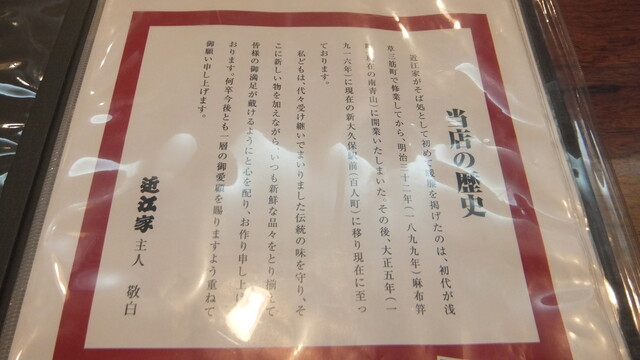 当店の歴史
近江家がそば処として初めて暖簾を掲げたのは、初代が浅
草三筋町で修業してから、明治三十二年(一八九九年)麻布笄
町(現在の南青山)に開業いたしまいた。その後、大正五年(一
九一六年)に現在の新大久保駅前(百人町)に移り現在に至っ
ております。
私どもは、代々受け継いでまいりました伝統の味を守り、そ
こに新しい物を加えながら、いつも新鮮な品々をとり揃えて
皆様の御満足が戴けるようにと心を配り、お作り申し上げ
おります。何卒今後とも一層の御愛顧を賜りますよう重ねて
御願い申し上げます。
近江家 主人 敬白